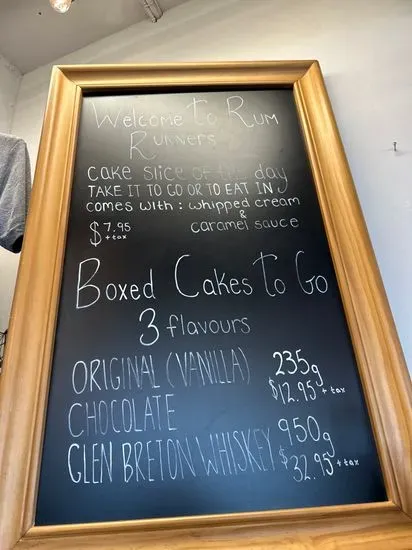 Welcome To Rum
Runners
cake slice of the day
TAKE IT TO GO OR TO EAT IN
comes with: whipped cream
&
caramel sauce
$7.95
+tax
Boxed Cakes To Go
3 flavours
ORIGINAL (VANILLA) 235g
$12.95 + tax
CHOCOLATE
950g
GLEN BRETON WHISKEY $32.95 + tax